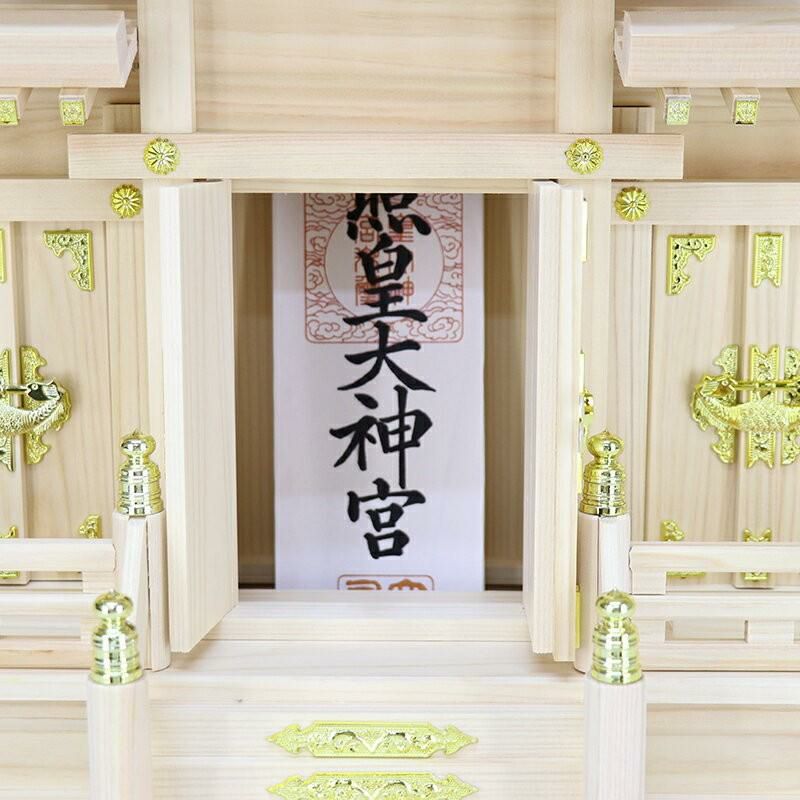 照皇大神宮